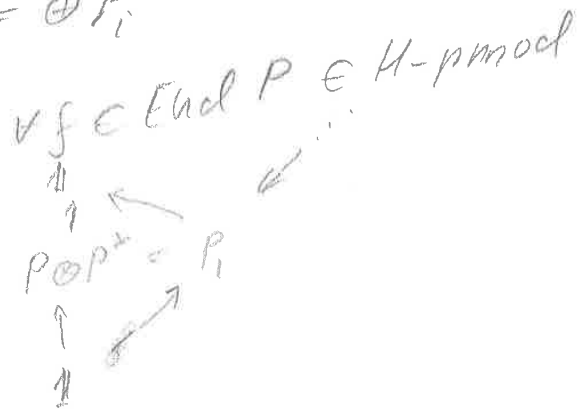 = ⊕ P_i
∀ f ∈ End P ∈ H-pmod
𝟙
P⊗P* = P_1
𝟙